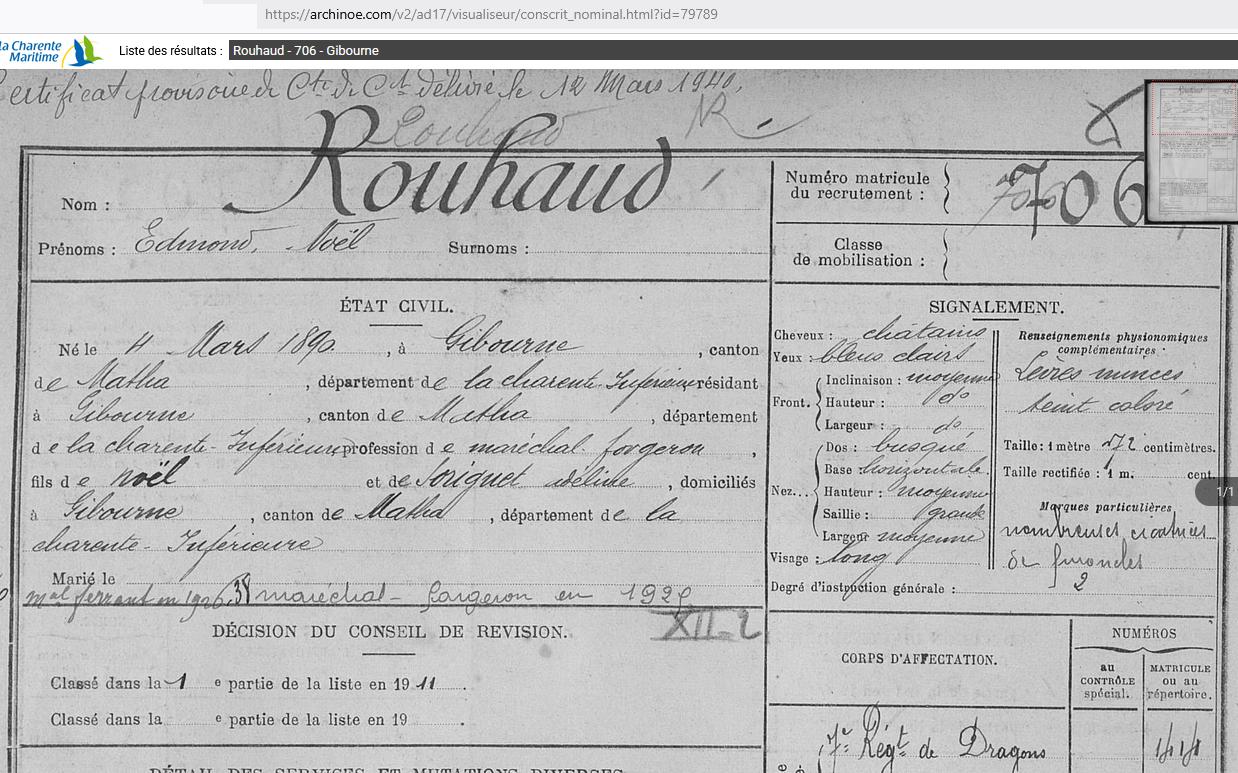 https://archinoe.com/v2/ad17/visualiseur/conscrit_nominal.html?id=79789
la Charente
Maritime
Liste des résultats : Rouhaud - 706 - Gibourne
Certificat provisoire de Cte de Ct délivré le 12 Mars 1940.
Rouhaud
NR
Nom : Rouhaud
Numéro matricule
du recrutement : 706
Prénoms : Edmond, Noël Surnoms :
Classe
de mobilisation :
ÉTAT CIVIL.
Né le 4 Mars 1890, à Gibourne, canton
de Matha, département de la charente Inférieure résidant
à Gibourne, canton de Matha, département
de la charente-Inférieure profession de maréchal forgeron,
fils de Noël et de Soriguet adeline, domiciliés
à Gibourne, canton de Matha, département de la
charente-Inférieure
Marié le
mal ferrant en 1926 maréchal-forgeron en
XII-2
SIGNALEMENT.
Cheveux : châtains
Yeux : bleus clairs
Front. Inclinaison : moyenne
Hauteur : do
Largeur : do
Nez... Dos : busqué
Base horizontale
Hauteur : moyenne
Saillie : grande
Largeur moyenne
Visage : long
Renseignements physionomiques
complémentaires :
Lèvres minces
teint coloré
Taille : 1 mètre 72 centimètres.
Taille rectifiée : 1 m. cent.
Marques particulières
nombreuses cicatrices
de furoncles
Degré d'instruction générale : 2
1/1
DÉCISION DU CONSEIL DE REVISION.
Classé dans la 1 e partie de la liste en 1911.
Classé dans la e partie de la liste en 19 .
DÉTAIL DES SERVICES ET MUTATIONS DIVERSES
CORPS D'AFFECTATION.
NUMÉROS
au
CONTRÔLE
spécial.
MATRICULE
ou au
répertoire.
7e Régt de Dragons